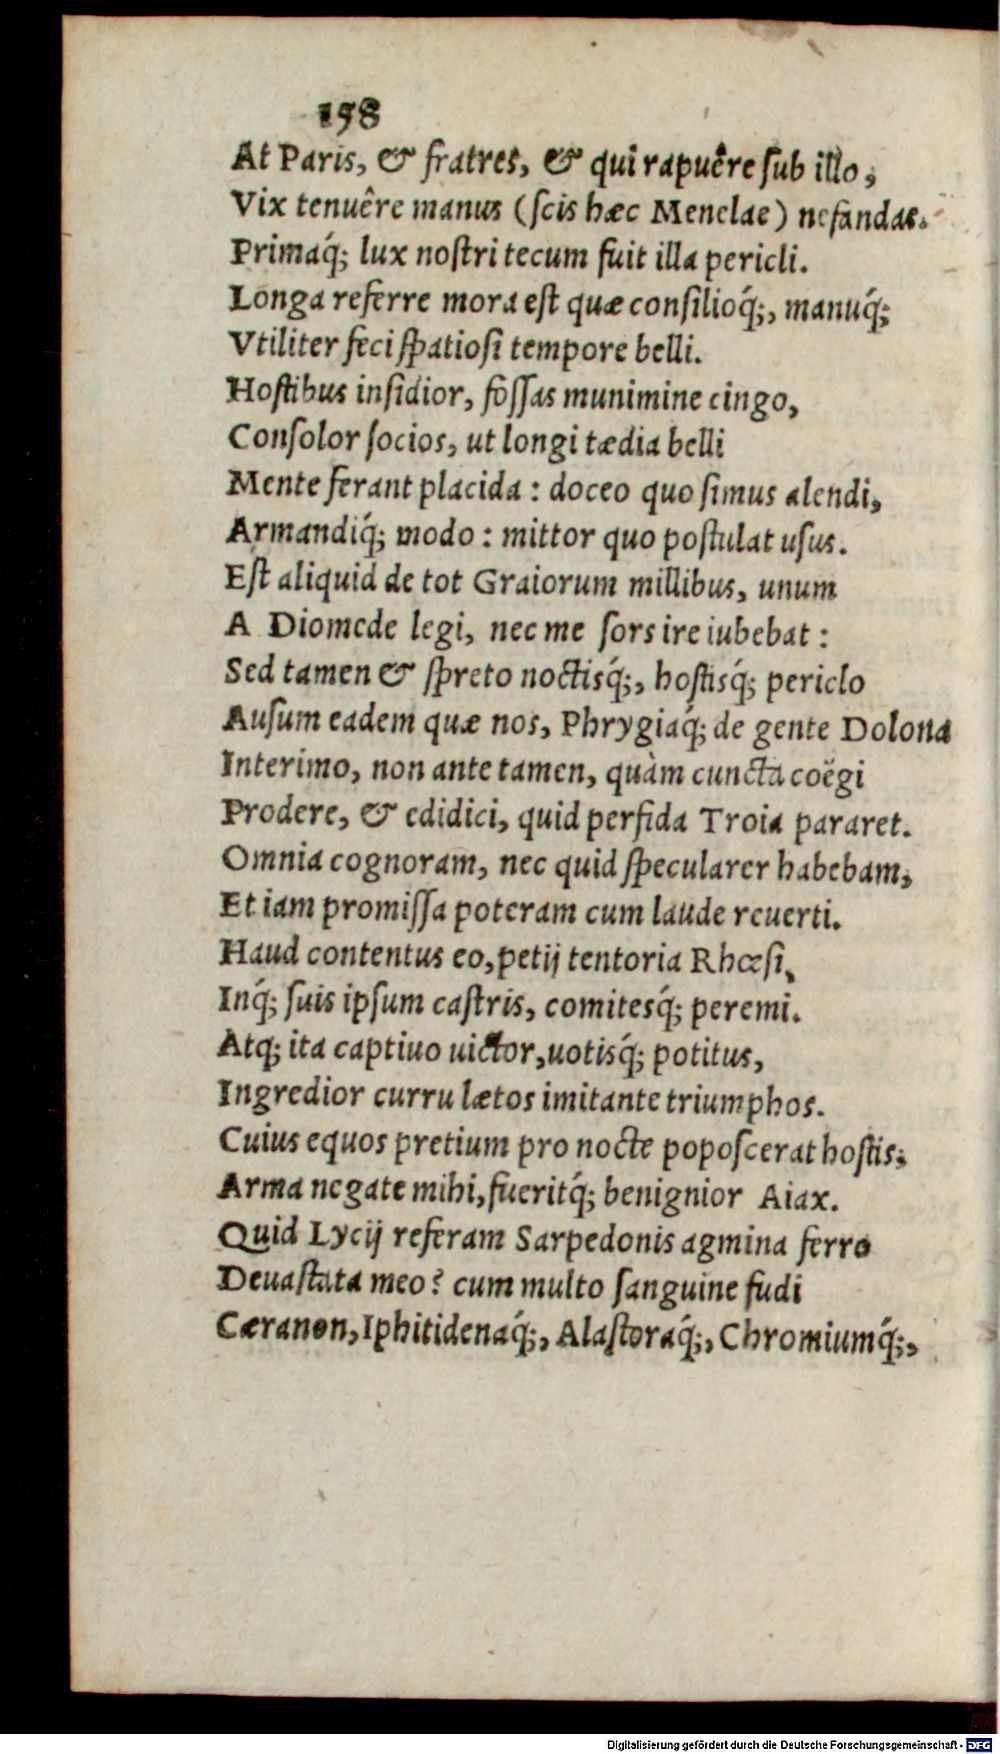 158
At Paris, & fratres, & qui rapuêre ſub illo,
Vix tenuêre manus (ſcis hæc Menelae) nefandas.
Primaq́; lux noſtri tecum fuit illa pericli.
Longa referre mora eſt quæ conſilioq́;, manuq́;
Vtiliter feci ſpatioſi tempore belli.
Hoſtibus inſidior, foſſas munimine cingo,
Conſolor ſocios, ut longi tædia belli
Mente ferant placida : doceo quo ſimus alendi,
Armandiq́; modo : mittor quo poſtulat uſus.
Eſt aliquid de tot Graiorum millibus, unum
A Diomede legi, nec me ſors ire iubebat :
Sed tamen & ſpreto noctisq́;, hoſtisq́; periclo
Auſum eadem quæ nos, Phrygiaq́; de gente Dolona
Interimo, non ante tamen, quàm cuncta coëgi
Prodere, & edidici, quid perfida Troia pararet.
Omnia cognoram, nec quid ſpecularer habebam,
Et iam promiſſa poteram cum laude reuerti.
Haud contentus eo, petij tentoria Rhœſi,
Inq́; ſuis ipſum caſtris, comitesq́; peremi.
Atq; ita captiuo uictor, uotisq́; potitus,
Ingredior curru lætos imitante triumphos.
Cuius equos pretium pro nocte popoſcerat hoſtis;
Arma negate mihi, fueritq́; benignior Aiax.
Quid Lycij referam Sarpedonis agmina ferro
Deuaſtata meo? cum multo ſanguine fudi
Cæranon, Iphitidenaq́;, Alaſtoraq́;, Chromiumq́;,
Digitalisierung gefördert durch die Deutsche Forschungsgemeinschaft - DFG